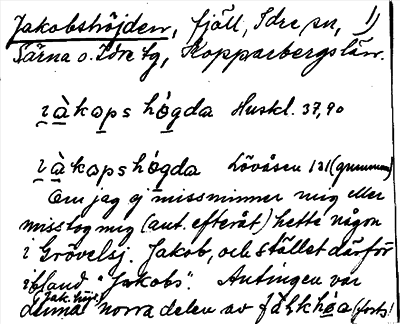 Jakobshöjden, fjäll, Idre sn, 1)
Särna o. Idre tg, Kopparbergs län.
ɩ̯àkops hǫ́gda Huskl. 37,90
ɩ̯àkops hǫ́gda Lövåsen 121 (gumman)
Om jag ej missminner mig eller
misstog mig (ant. efteråt) hette någon
i Grövelsj. Jakob, och stället därför
ibland "Jakobs". Antingen var
Jak.höjd
denna norra delen av fǻlkhǫ́a (forts!